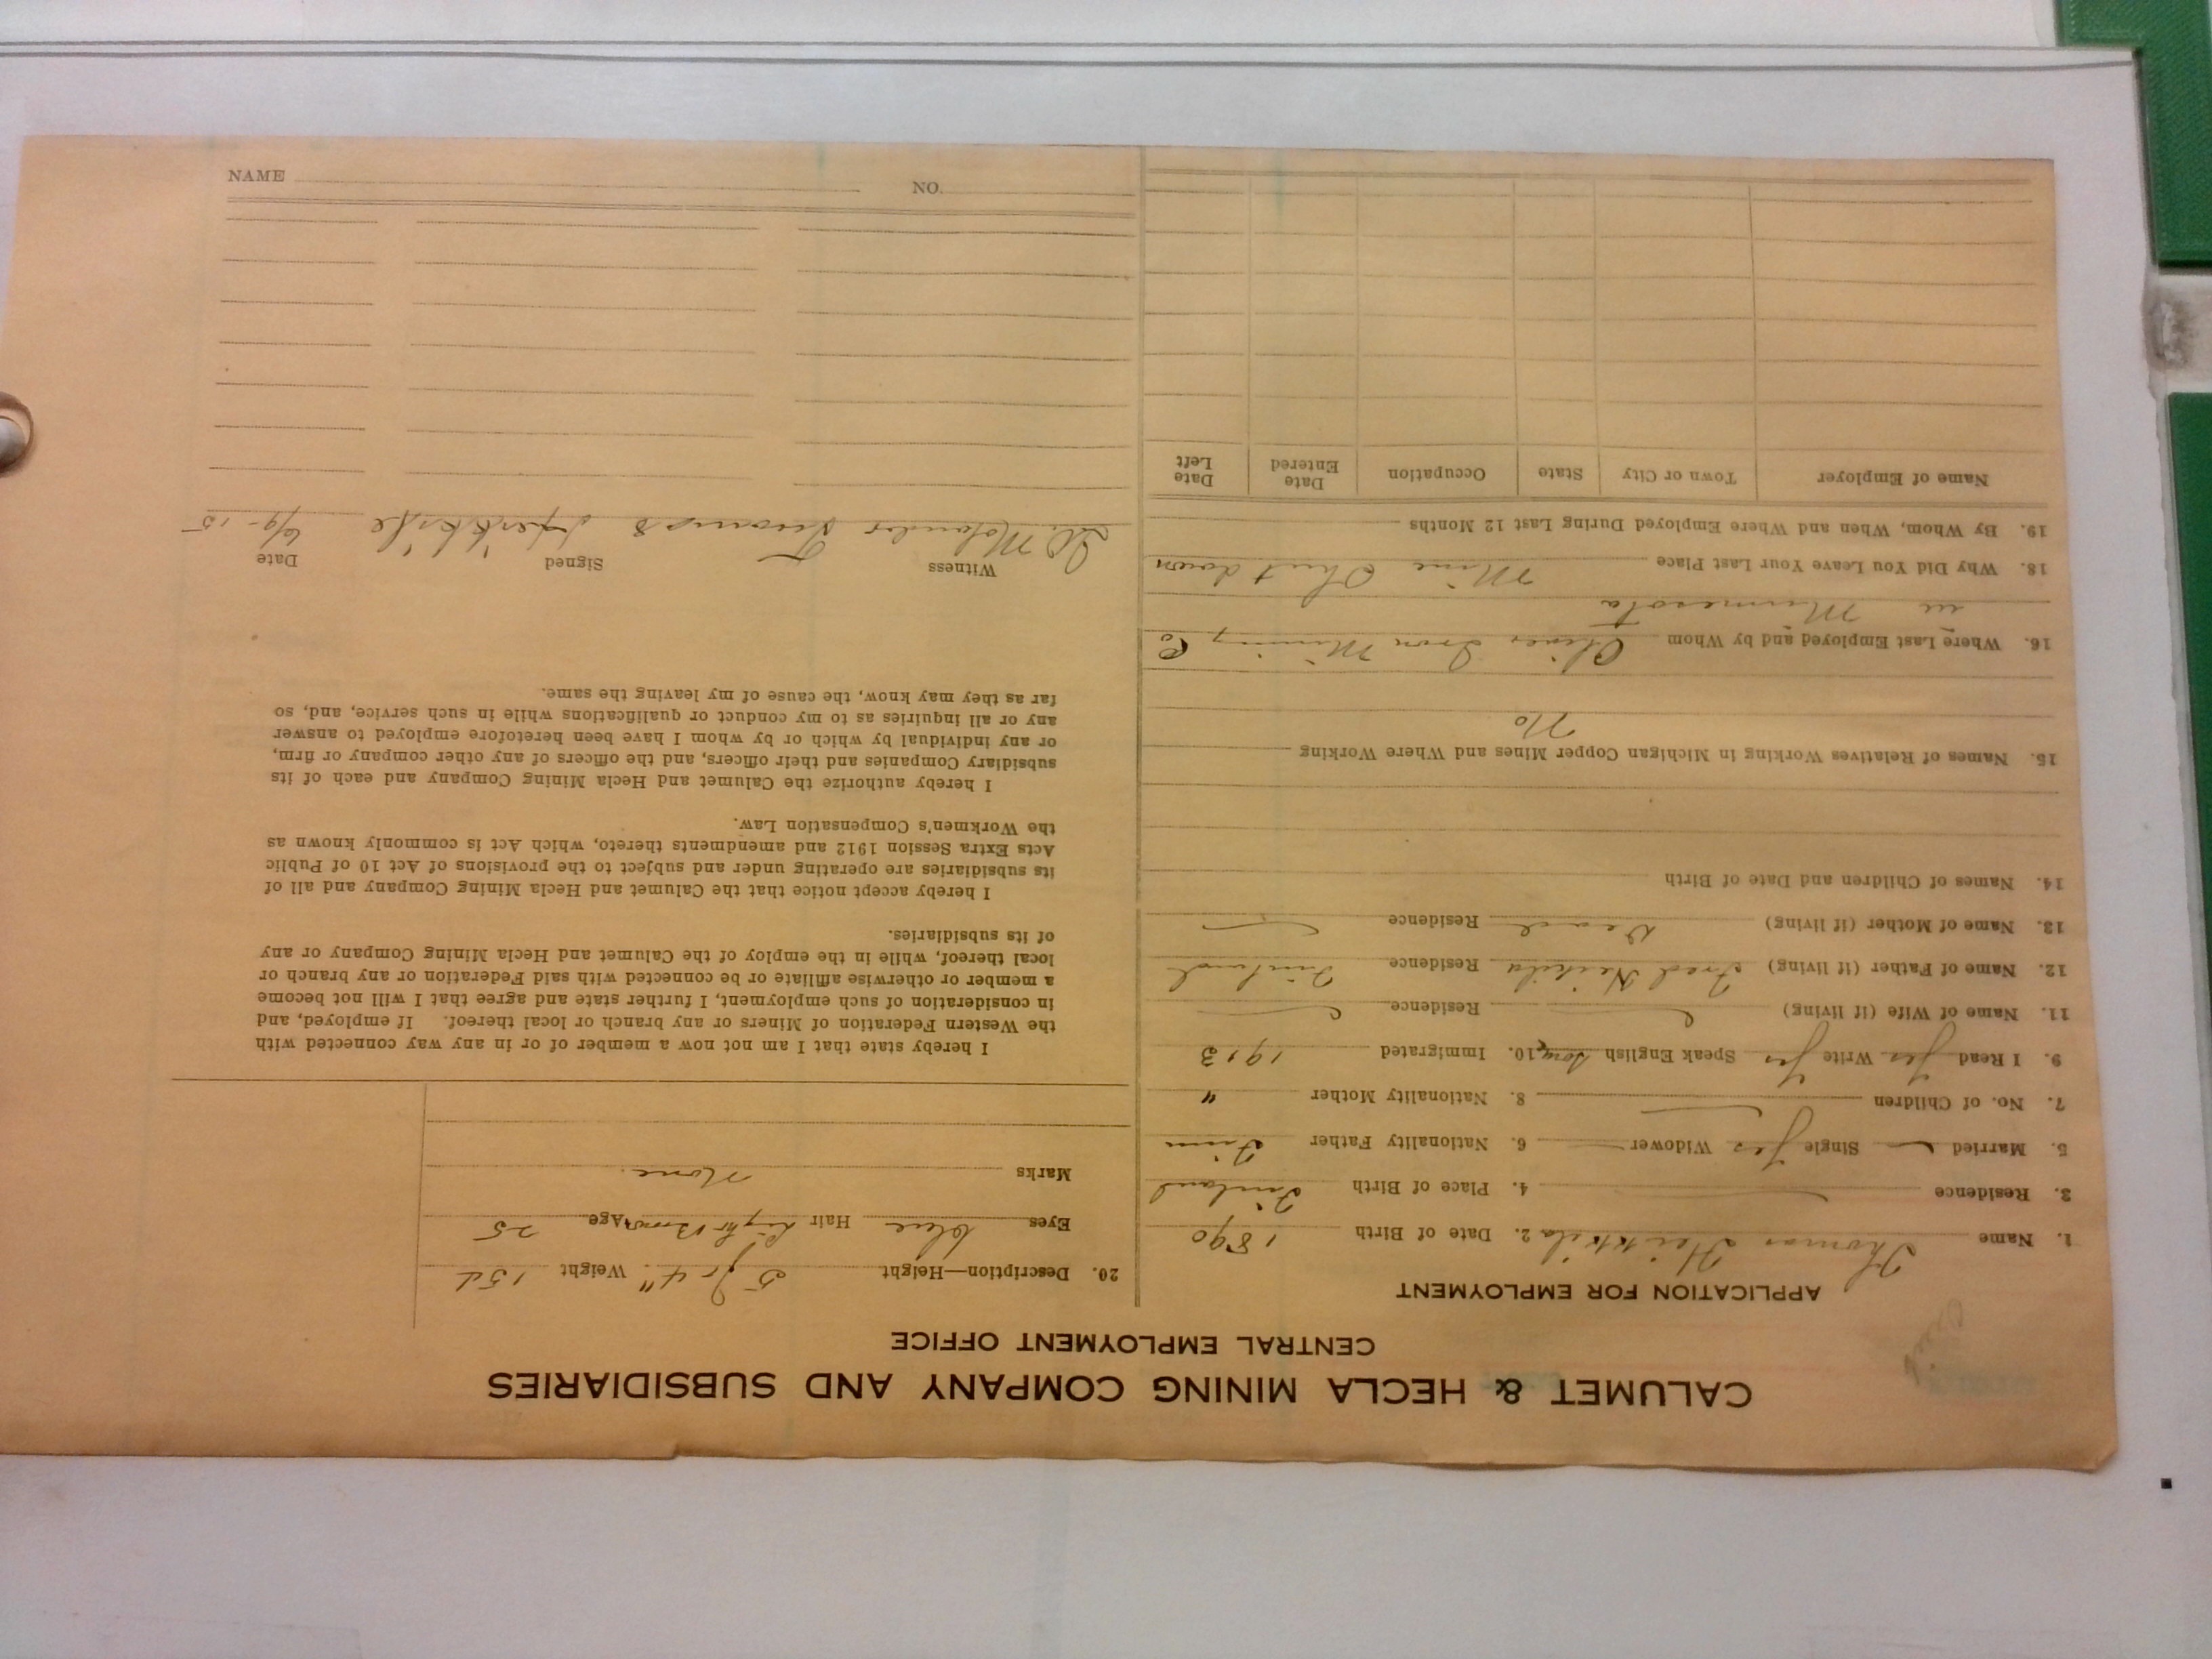 CALUMET & HECLA MINING COMPANY AND SUBSIDIARIES
CENTRAL EMPLOYMENT OFFICE
APPLICATION FOR EMPLOYMENT
1. Name Thomas Heikkila 2. Date of Birth 1890
3. Residence — 4. Place of Birth Finland
5. Married — Single Yes Widower — 6. Nationality Father Finn
7. No. of Children — 8. Nationality Mother "
9. I Read Yes Write Yes Speak English 10. Immigrated 1913
11. Name of Wife (if living) — Residence —
12. Name of Father (if living) Fred Heikila Residence Finland
13. Name of Mother (if living) Dead Residence —
14. Names of Children and Date of Birth
15. Names of Relatives Working in Michigan Copper Mines and Where Working
No
16. Where Last Employed and by Whom Oliver Iron Mining Co
in Minnesota
18. Why Did You Leave Your Last Place Mine Shut down
19. By Whom, When and Where Employed During Last 12 Months
Name of Employer Town or City State Occupation Date Entered Date Left
20. Description—Height 5 f 4" Weight 154
Eyes blue Hair Light Brown Age 25
Marks None.
I hereby state that I am not now a member of or in any way connected with
the Western Federation of Miners or any branch or local thereof. If employed, and
in consideration of such employment, I further state and agree that I will not become
a member or otherwise affiliate or be connected with said Federation or any branch or
local thereof, while in the employ of the Calumet and Hecla Mining Company or any
of its subsidiaries.
I hereby accept notice that the Calumet and Hecla Mining Company and all of
its subsidiaries are operating under and subject to the provisions of Act 10 of Public
Acts Extra Session 1912 and amendments thereto, which Act is commonly known as
the Workmen's Compensation Law.
I hereby authorize the Calumet and Hecla Mining Company and each of its
subsidiary Companies and their officers, and the officers of any other company or firm,
or any individual by which or by whom I have been heretofore employed to answer
any or all inquiries as to my conduct or qualifications while in such service, and, so
far as they may know, the cause of my leaving the same.
Witness Signed Date
Molander Tuomas 6/9-15
NAME NO.